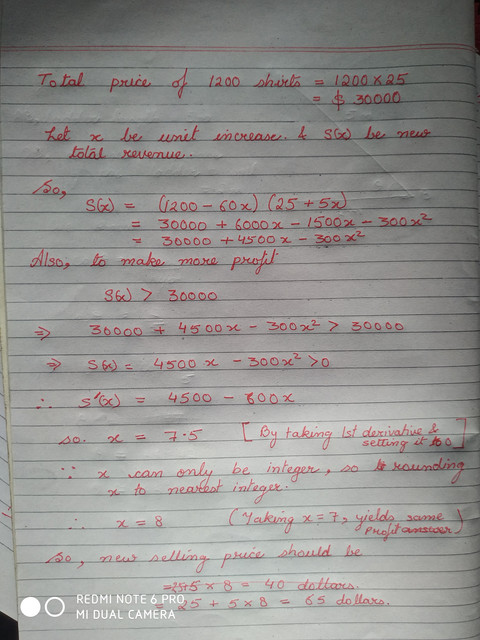 Total price of 1200 shirts = 1200 × 25
= $ 30000
Let x be unit increase. & S(x) be new
total revenue.
So,
S(x) = (1200 - 60x) (25 + 5x)
= 30000 + 6000x - 1500x - 300x²
= 30000 + 4500x - 300x²
Also, to make more profit
S(x) > 30000
⇒ 30000 + 4500x - 300x² > 30000
⇒ S(x) = 4500x - 300x² > 0
∴ S'(x) = 4500 - 600x
so. x = 7.5 [By taking 1st derivative &
setting it to 0]
∵ x can only be integer, so rounding
x to nearest integer.
∴ x = 8 (Taking x = 7, yields same
profit answer)
So, new selling price should be
= 5 × 8 = 40 dollars.
= 25 + 5 × 8 = 65 dollars.
REDMI NOTE 6 PRO
MI DUAL CAMERA